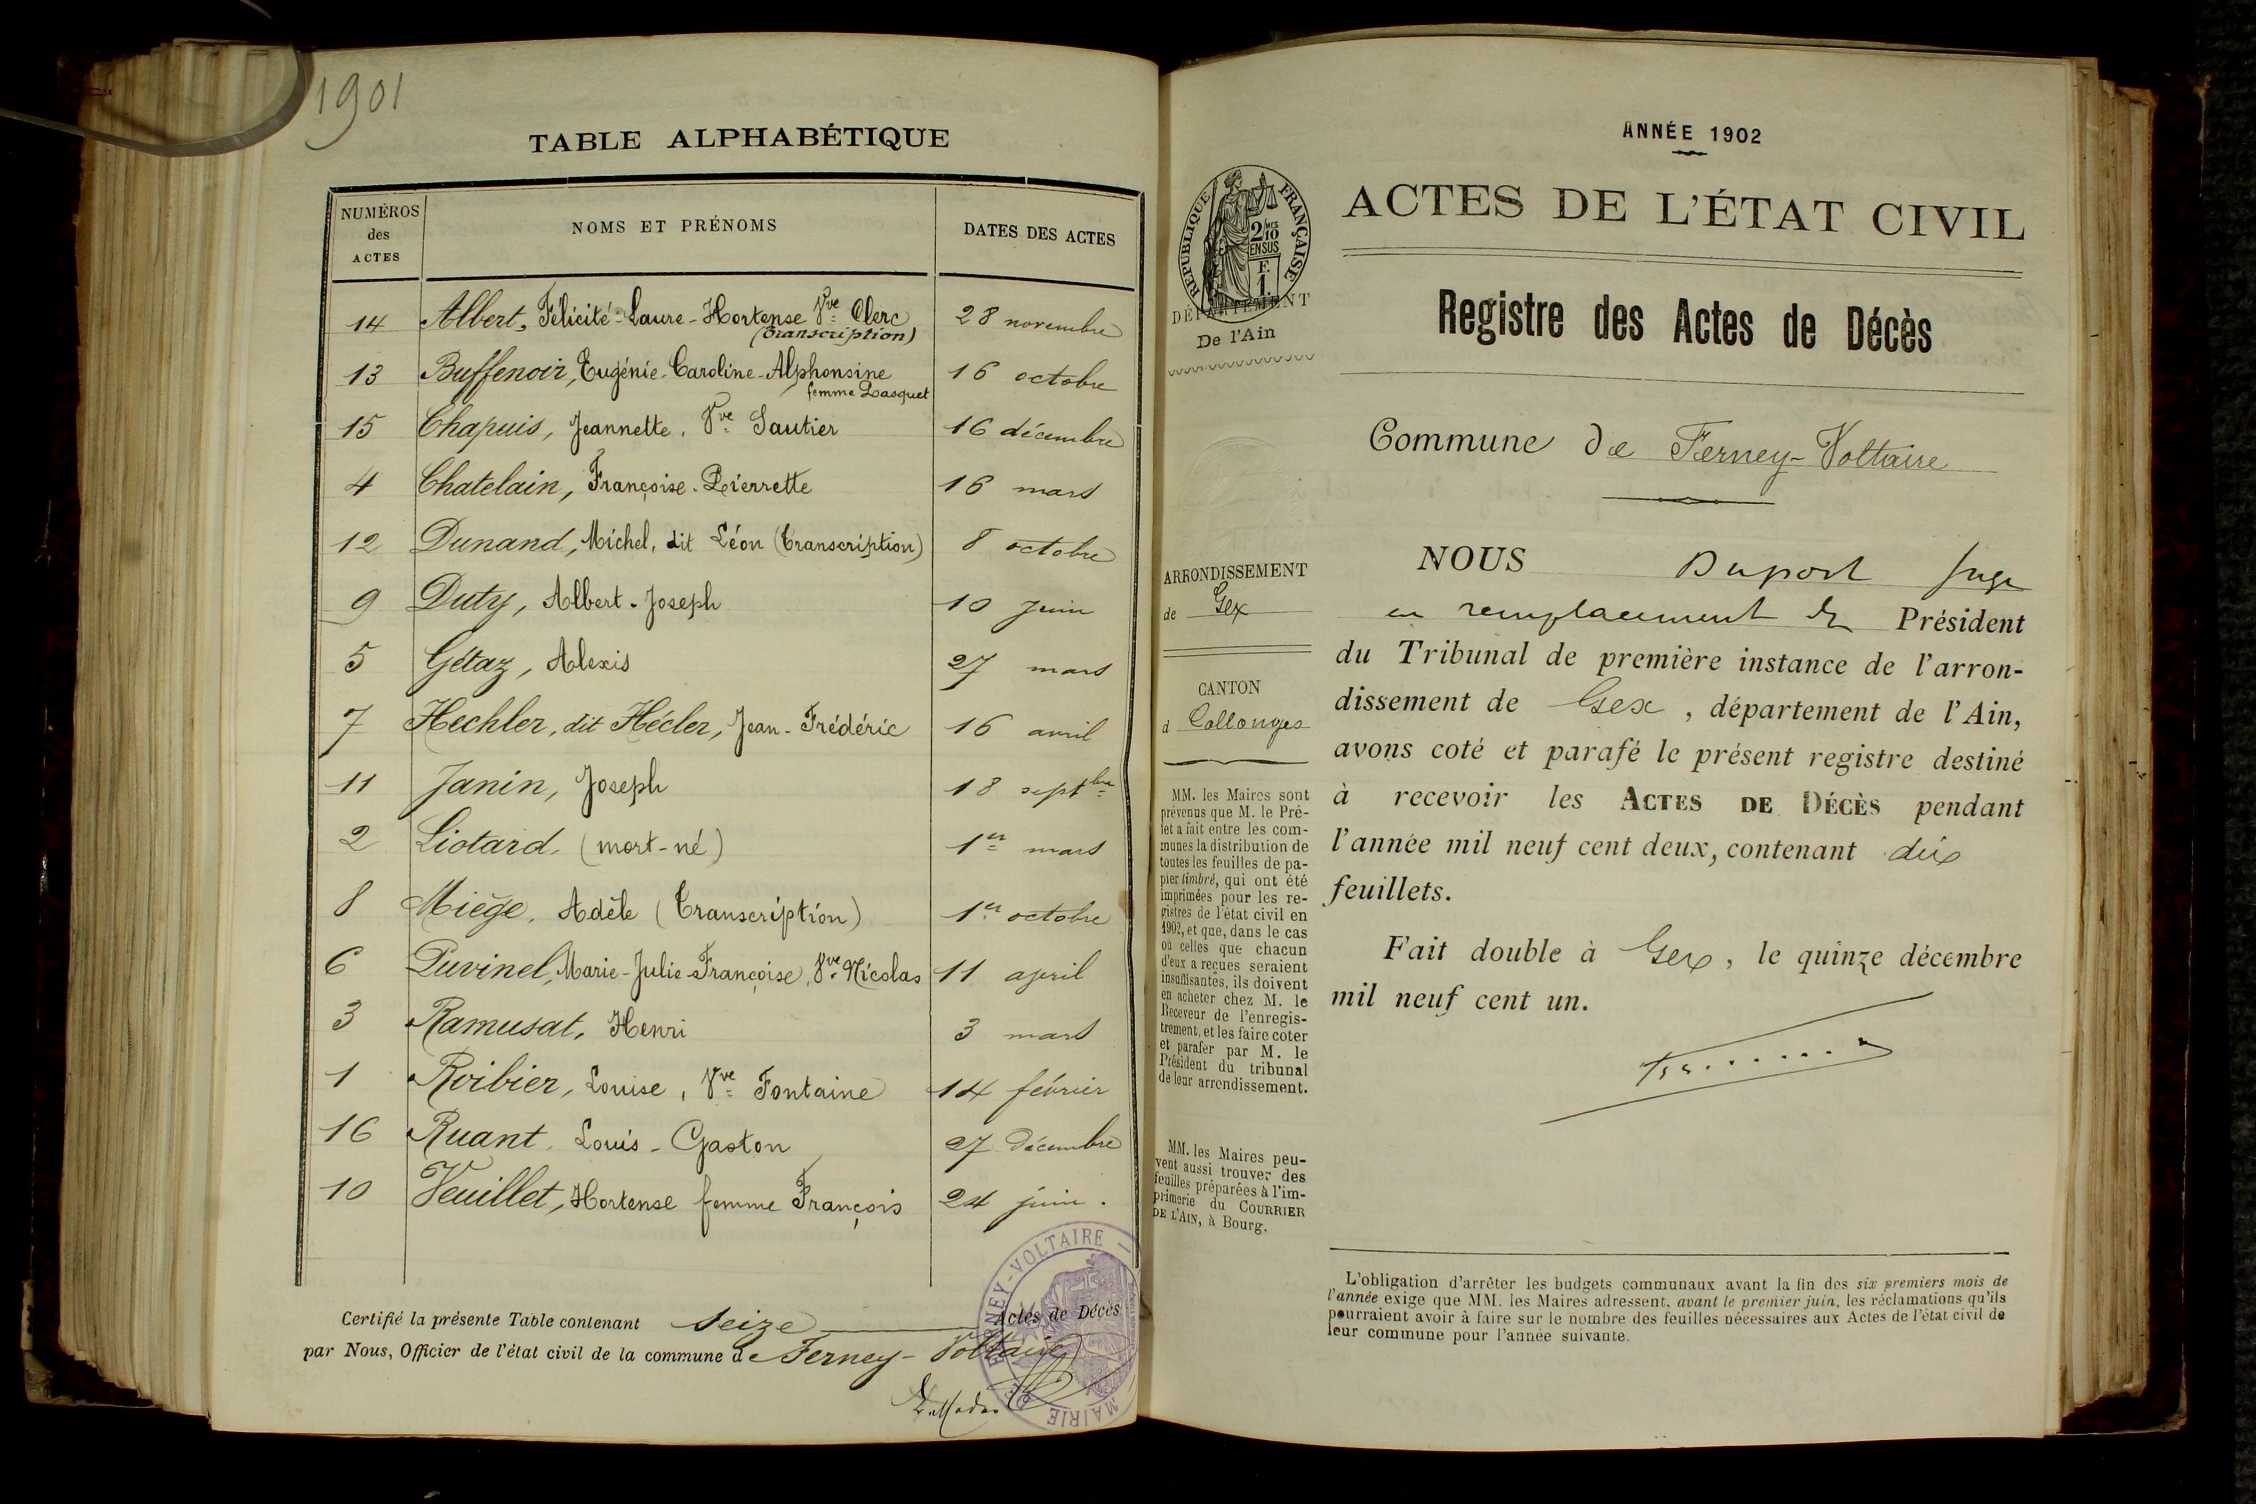 1901
TABLE ALPHABÉTIQUE
NUMÉROS des ACTES NOMS ET PRÉNOMS DATES DES ACTES
14 Albert, Félicité-Laure-Hortense Vve Clerc 28 novembre
(Transcription)
13 Buffenoir, Eugénie-Caroline-Alphonsine 16 octobre
femme Pasquet
15 Chapuis, Jeannette, Vve Sautier 16 décembre
4 Chatelain, Françoise-Pierrette 16 mars
12 Dunand, Michel, dit Léon (Transcription) 8 octobre
9 Duty, Albert-Joseph 10 Juin
5 Gétaz, Alexis 27 mars
7 Hechler, dit Hécler, Jean-Frédéric 16 avril
11 Janin, Joseph 18 septbre
2 Liotard (mort-né) 1er mars
8 Miège, Adèle (Transcription) 1er octobre
6 Puvinel, Marie-Julie-Françoise, Vve Nicolas 11 april
3 Ramusat, Henri 3 mars
1 Roibier, Louise, Vve Fontaine 14 février
16 Ruant, Louis-Gaston 27 Décembre
10 Veuillet, Hortense femme François 24 juin.
Certifié la présente Table contenant seize Actes de Décès
par Nous, Officier de l'état civil de la commune de Ferney-Voltaire
MAIRIE DE FERNEY-VOLTAIRE
ANNÉE 1902
ACTES DE L'ÉTAT CIVIL
Registre des Actes de Décès
Commune de Ferney-Voltaire
NOUS Duport Juge
en remplacement du Président
du Tribunal de première instance de l'arron-
dissement de Gex, département de l'Ain,
avons coté et parafé le présent registre destiné
à recevoir les ACTES DE DÉCÈS pendant
l'année mil neuf cent deux, contenant dix
feuillets.
Fait double à Gex, le quinze décembre
mil neuf cent un.
RÉPUBLIQUE FRANÇAISE
2/10 EN SUS
F. 1.
DÉPARTEMENT
De l'Ain
ARRONDISSEMENT
de Gex
CANTON
d Collonges
MM. les Maires sont
prévenus que M. le Pré-
fet a fait entre les com-
munes la distribution de
toutes les feuilles de pa-
pier timbré, qui ont été
imprimées pour les re-
gistres de l'état civil en
1902, et que, dans le cas
où celles que chacun
d'eux a reçues seraient
insuffisantes, ils doivent
en acheter chez M. le
Receveur de l'enregis-
trement, et les faire coter
et parafer par M. le
Président du tribunal
de leur arrondissement.
MM. les Maires peu-
vent aussi trouver des
feuilles préparées à l'im-
primerie du COURRIER
DE L'AIN, à Bourg.
L'obligation d'arrêter les budgets communaux avant la fin des six premiers mois de
l'année exige que MM. les Maires adressent, avant le premier juin, les réclamations qu'ils
pourraient avoir à faire sur le nombre des feuilles nécessaires aux Actes de l'état civil de
leur commune pour l'année suivante.